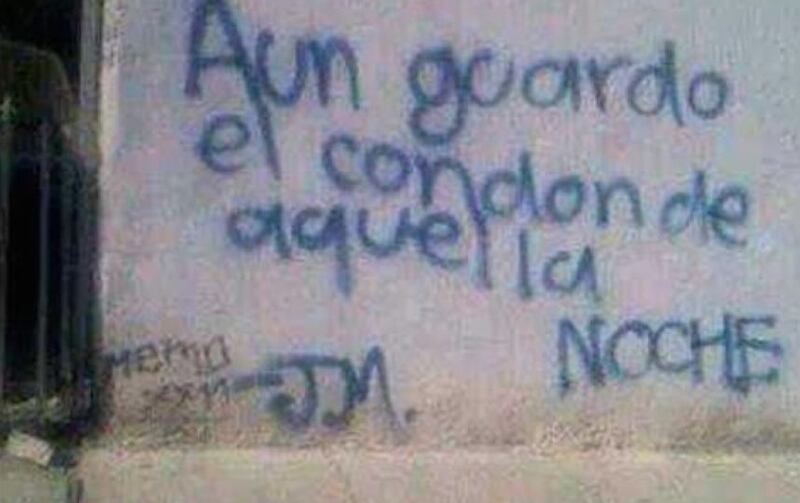 Aun guardo
el condon de
aquella
NOCHE
MEMO
J.M.